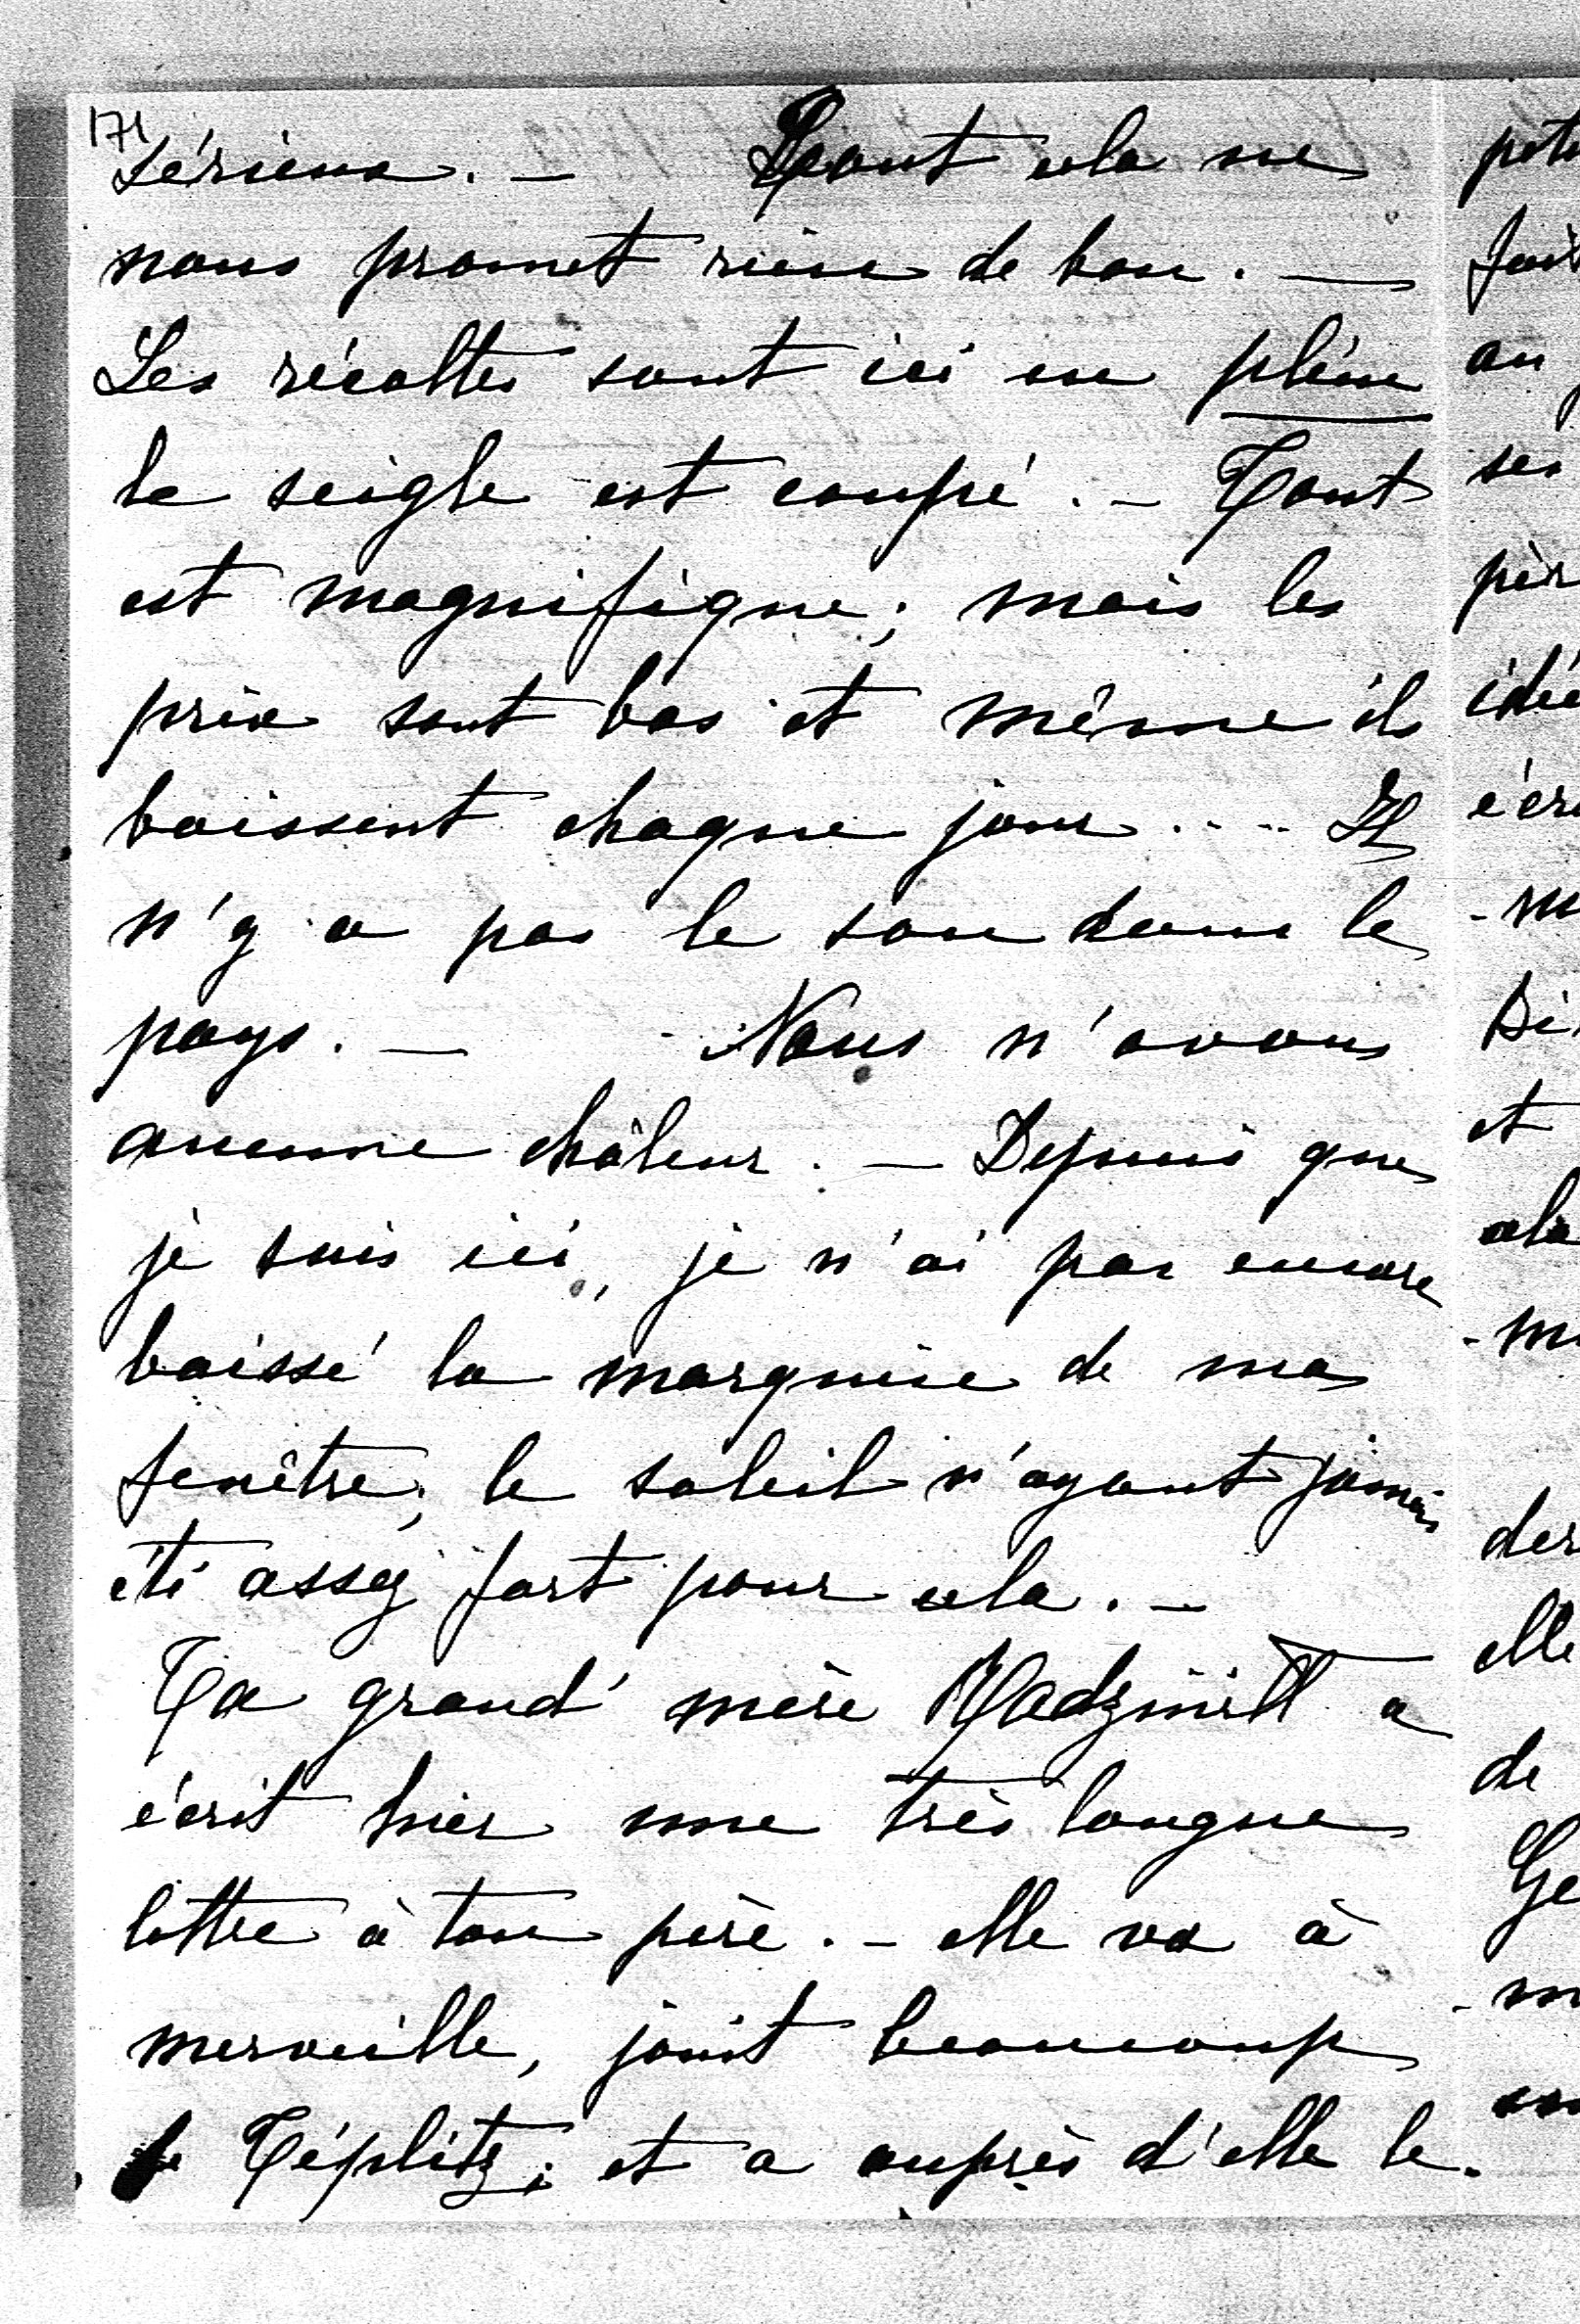 171
sérieux. — Tout cela ne
nous promet rien de bon. —
Les récoltes sont ici en pleine
le seigle est coupé. — Tout
est magnifique; mais les
prix sont bas et même ils
baissent chaque jour.... Il
n'y a pas le sou dans le
pays. — Nous n'avons
aucune châleur. — Depuis que
je suis ici, je n'ai pas encore
baissé la marquise de ma
fenêtre; le soleil n'ayant jamais
été assez fort pour cela. —
Ta grand'mère Radziwill a
écrit hier une très longue
lettre à ton père. — elle va à
merveille, jouit beaucoup
de Téplitz; et a auprès d'elle le